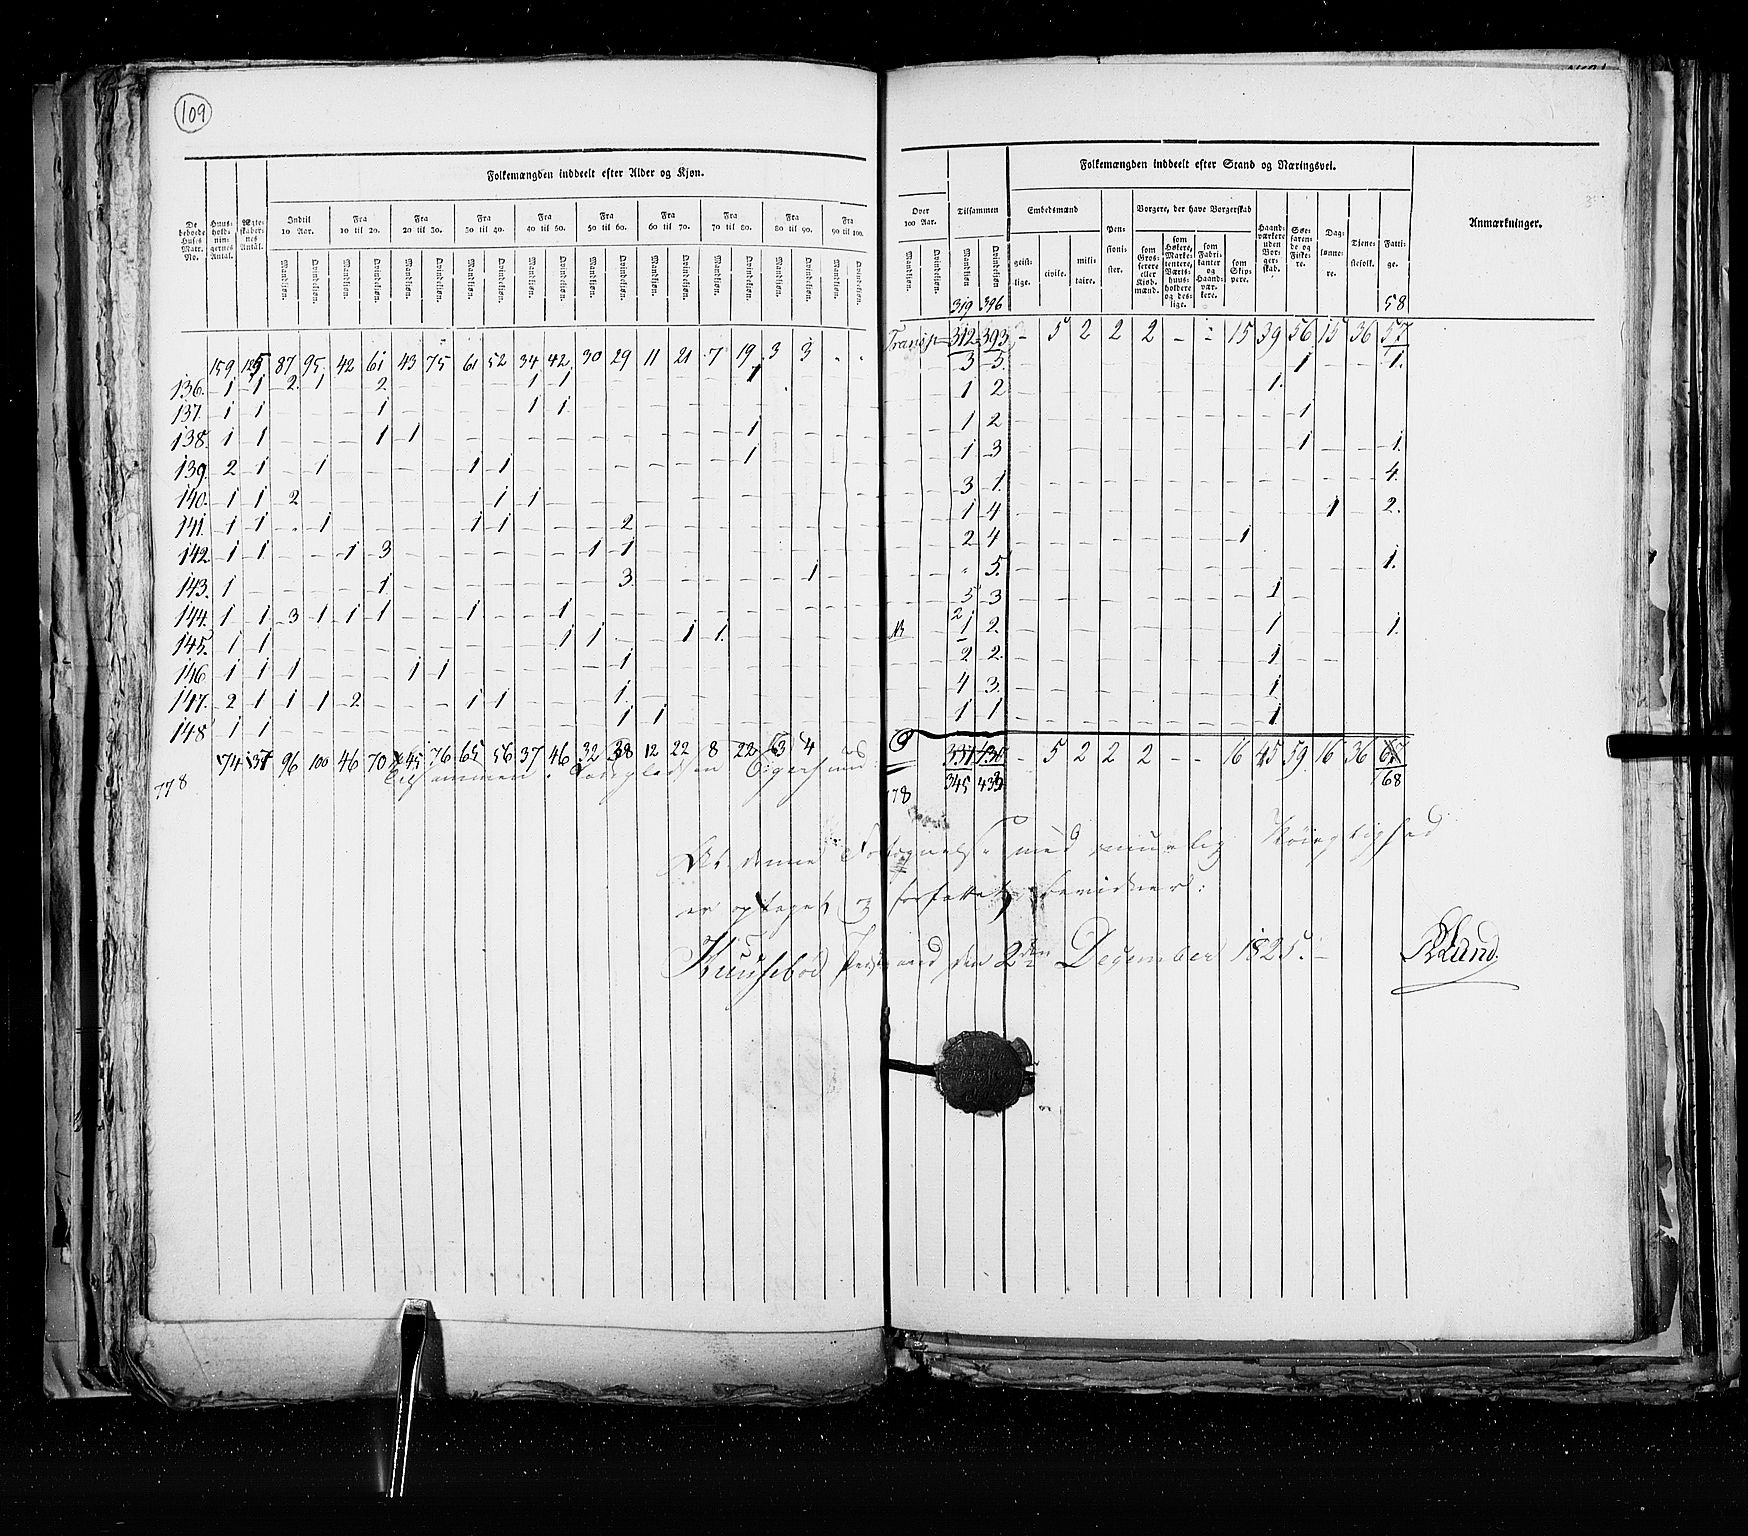 109
Folkemængden inddeelt efter Alder og Kjøn.
De beboede Huses Matr. No. Huus-holdnin-gernes Antal. Ægte-skaber-nes Antal. Indtil 10 Aar. Fra 10 til 20. Fra 20 til 30. Fra 30 til 40. Fra 40 til 50. Fra 50 til 60. Fra 60 til 70. Fra 70 til 80. Fra 80 til 90. Fra 90 til 100.
Mandkjøn. Qvindekjøn. Mandkjøn. Qvindekjøn. Mandkjøn. Qvindekjøn. Mandkjøn. Qvindekjøn. Mandkjøn. Qvindekjøn. Mandkjøn. Qvindekjøn. Mandkjøn. Qvindekjøn. Mandkjøn. Qvindekjøn. Mandkjøn. Qvindekjøn. Mandkjøn. Qvindekjøn.
159 125 87 95 42 61 43 75 61 52 34 42 30 29 11 21 7 19 3 3
136. 1 1 2 1 2 1 1 1
137. 1 1 1 1 1
138. 1 1 1 1 1
139. 2 1 1 1 1 1
140. 1 1 2 1 1
141. 1 1 1 1 1 2
142. 1 1 1 3 1 1
143. 1 1 3 1
144. 1 1 3 1 1 1 1 1
145. 1 1 1 1 1 1
146 1 1 1 1 1 1
147. 2 1 1 1 2 1 1 1
148 1 1 1 1
174 137 96 100 46 70 45 76 65 56 37 46 32 38 12 22 8 22 3 4
Tilsammen Ladepladsen Egersund
778
Folkemængden inddeelt efter Stand og Næringsvei.
Over 100 Aar. Tilsammen Embedsmænd Pensionister. Borgere, der have Borgerskab Haandværkere uden Borgerskab. Søefarende og Fiskere. Daglønnere. Tjenestefolk. Fattige. Anmærkninger.
Mandkjøn. Qvindekjøn. Mandkjøn. Qvindekjøn. geistlige. civile. militaire. som Grosserere eller Kjøbmænd. som Høkere, Markentere, Værtshuusholdere og deslige. som Fabrikanter og Haandværkere. som Skippere.
319 396 58
Transp 312 393 5 2 2 2 15 39 56 15 36 57
3 5. 1 1.
1 2 1.
1 2 1
1 3 1 1.
3 1. 4.
1 4 1 2.
2 4 1
5. 1.
5 3 1
2 1 2. 1 1.
2 2. 1
4 3. 1
1 1 1
5 2 2 2 16 45 59 16 36 67
345 433 68
778
At denne Fortegnelse med muelig Nøiaglighed
er optaget og forfattet, bevidner:
Kuusebøe Præstegaard den 2den December 1825.
Lund